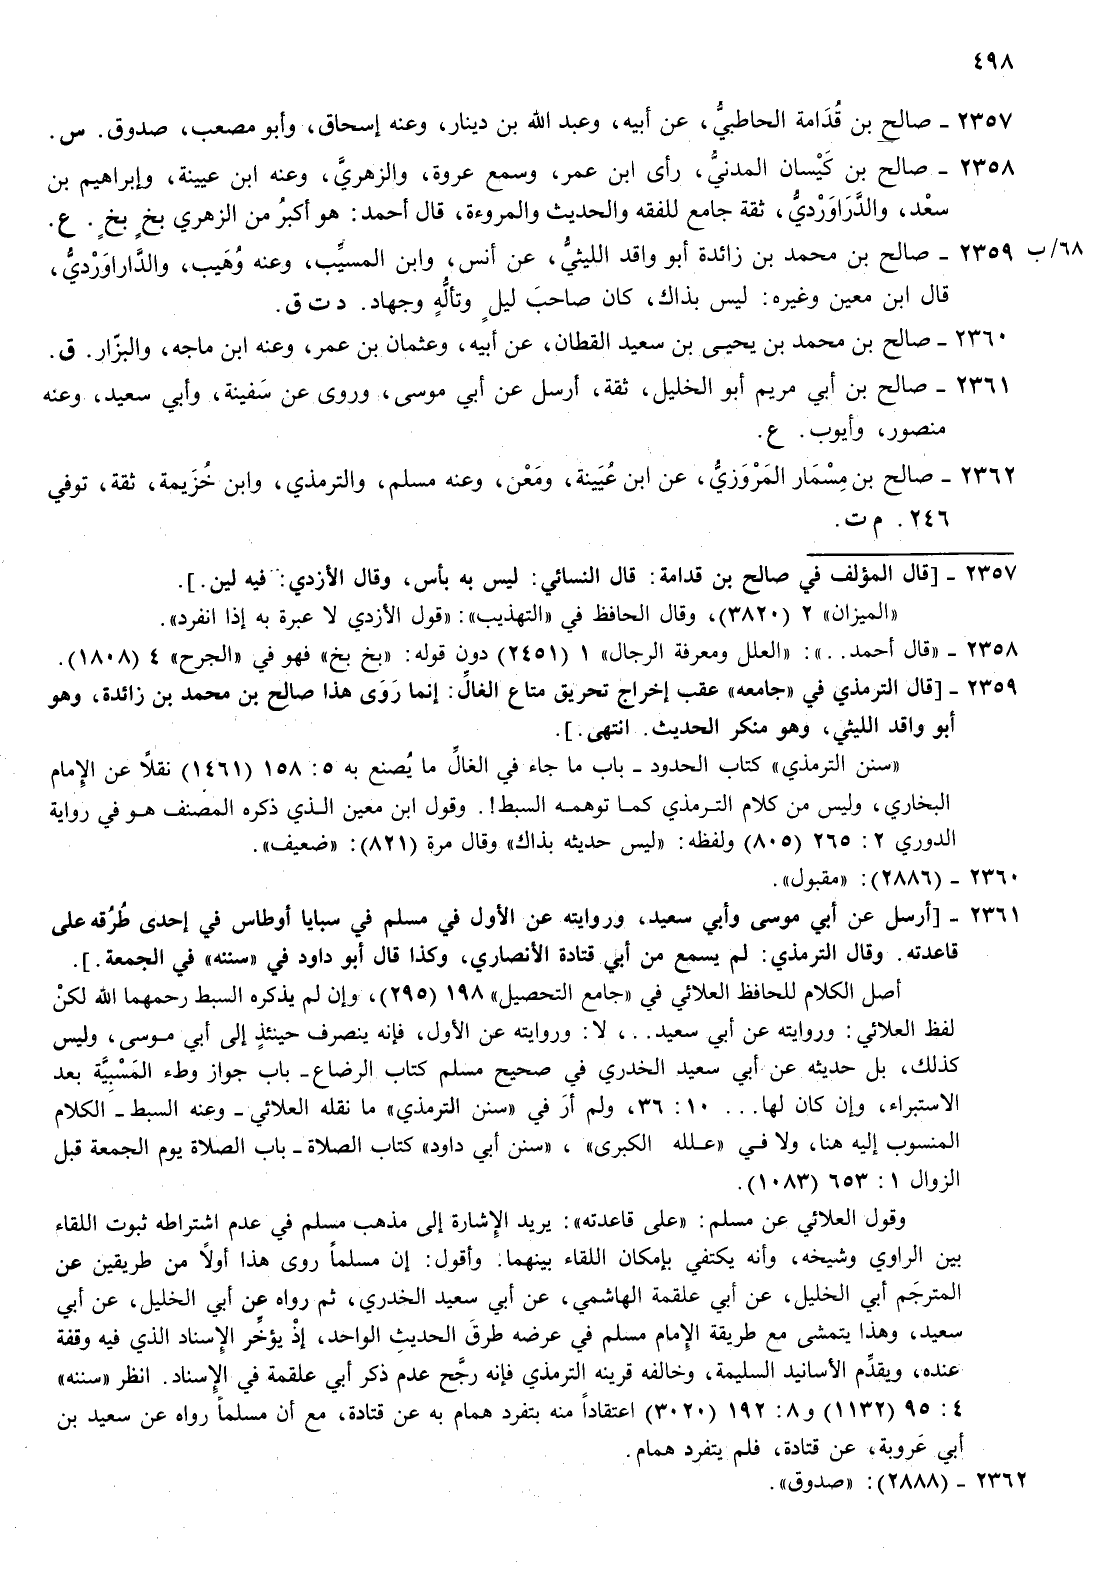 ٤٩٨
٢٣٥٧ ـ صالح بن قُدَامة الحاطبيُّ، عن أبيه، وعبد الله بن دينار، وعنه إسحاق، وأبو مصعب، صدوق. س.
٢٣٥٨ ـ صالح بن كَيْسان المدنيُّ، رأى ابن عمر، وسمع عروة، والزهريَّ، وعنه ابن عيينة، وإبراهيم بن
سعْد، والدَّرَاوَرْديُّ، ثقة جامع للفقه والحديث والمروءة، قال أحمد: هو أكبرُ من الزهري بخٍ بخٍ. ع.
٦٨/ب ٢٣٥٩ ـ صالح بن محمد بن زائدة أبو واقد الليثيُّ، عن أنس، وابن المسيِّب، وعنه وُهَيب، والدَّاراوَرْديُّ،
قال ابن معين وغيره: ليس بذاك، كان صاحبَ ليلٍ وتألُّهٍ وجهاد. د ت ق.
٢٣٦٠ ـ صالح بن محمد بن يحيى بن سعيد القطان، عن أبيه، وعثمان بن عمر، وعنه ابن ماجه، والبزّار. ق.
٢٣٦١ ـ صالح بن أبي مريم أبو الخليل، ثقة، أرسل عن أبي موسى، وروى عن سَفينة، وأبي سعيد، وعنه
منصور، وأيوب. ع.
٢٣٦٢ ـ صالح بن مِسْمَار المَرْوَزيُّ، عن ابن عُيَينة، ومَعْن، وعنه مسلم، والترمذي، وابن خُزَيمة، ثقة، توفي
٢٤٦. م ت.
٢٣٥٧ ـ [قال المؤلف في صالح بن قدامة: قال النسائي: ليس به بأس، وقال الأزدي: فيه لين.].
«الميزان» ٢ (٣٨٢٠)، وقال الحافظ في «التهذيب»: «قول الأزدي لا عبرة به إذا انفرد».
٢٣٥٨ ـ «قال أحمد..»: «العلل ومعرفة الرجال» ١ (٢٤٥١) دون قوله: «بخ بخ» فهو في «الجرح» ٤ (١٨٠٨).
٢٣٥٩ ـ [قال الترمذي في «جامعه» عقب إخراج تحريق متاع الغالِّ: إنما رَوَى هذا صالح بن محمد بن زائدة، وهو
أبو واقد الليثي، وهو منكر الحديث. انتهى.].
«سنن الترمذي» كتاب الحدود ـ باب ما جاء في الغالِّ ما يُصنع به ٥: ١٥٨ (١٤٦١) نقلاً عن الإمام
البخاري، وليس من كلام الترمذي كما توهمه السبط!. وقول ابن معين الذي ذكره المصنف هو في رواية
الدوري ٢: ٢٦٥ (٨٠٥) ولفظه: «ليس حديثه بذاك» وقال مرة (٨٢١): «ضعيف».
٢٣٦٠ ـ (٢٨٨٦): «مقبول».
٢٣٦١ ـ [أرسل عن أبي موسى وأبي سعيد، وروايته عن الأول في مسلم في سبايا أوطاس في إحدى طُرُقه على
قاعدته. وقال الترمذي: لم يسمع من أبي قتادة الأنصاري، وكذا قال أبو داود في «سننه» في الجمعة.].
أصل الكلام للحافظ العلائي في «جامع التحصيل» ١٩٨ (٢٩٥)، وإن لم يذكره السبط رحمهما الله لكنْ
لفظ العلائي: وروايته عن أبي سعيد...، لا: وروايته عن الأول، فإنه ينصرف حينئذٍ إلى أبي موسى، وليس
كذلك، بل حديثه عن أبي سعيد الخدري في صحيح مسلم كتاب الرضاع ـ باب جواز وطء المَسْبِيَّة بعد
الاستبراء، وإن كان لها... ١٠: ٣٦، ولم أرَ في «سنن الترمذي» ما نقله العلائي ـ وعنه السبط ـ الكلام
المنسوب إليه هنا، ولا في «علله الكبرى»، «سنن أبي داود» كتاب الصلاة ـ باب الصلاة يوم الجمعة قبل
الزوال ١: ٦٥٣ (١٠٨٣).
وقول العلائي عن مسلم: «على قاعدته»: يريد الإشارة إلى مذهب مسلم في عدم اشتراطه ثبوت اللقاء
بين الراوي وشيخه، وأنه يكتفي بإمكان اللقاء بينهما. وأقول: إن مسلماً روى هذا أولًا من طريقين عن
المترجَم أبي الخليل، عن أبي علقمة الهاشمي، عن أبي سعيد الخدري، ثم رواه عن أبي الخليل، عن أبي
سعيد، وهذا يتمشى مع طريقة الإمام مسلم في عرضه طرقَ الحديثِ الواحد، إذْ يؤخِّر الإسناد الذي فيه وقفة
عنده، ويقدِّم الأسانيد السليمة، وخالفه قرينه الترمذي فإنه رجَّح عدم ذكر أبي علقمة في الإسناد. انظر «سننه»
٤: ٩٥ (١١٣٢) و٨: ١٩٢ (٣٠٢٠) اعتقاداً منه بتفرد همام به عن قتادة، مع أن مسلماً رواه عن سعيد بن
أبي عَروبة، عن قتادة، فلم يتفرد همام.
٢٣٦٢ ـ (٢٨٨٨): «صدوق».